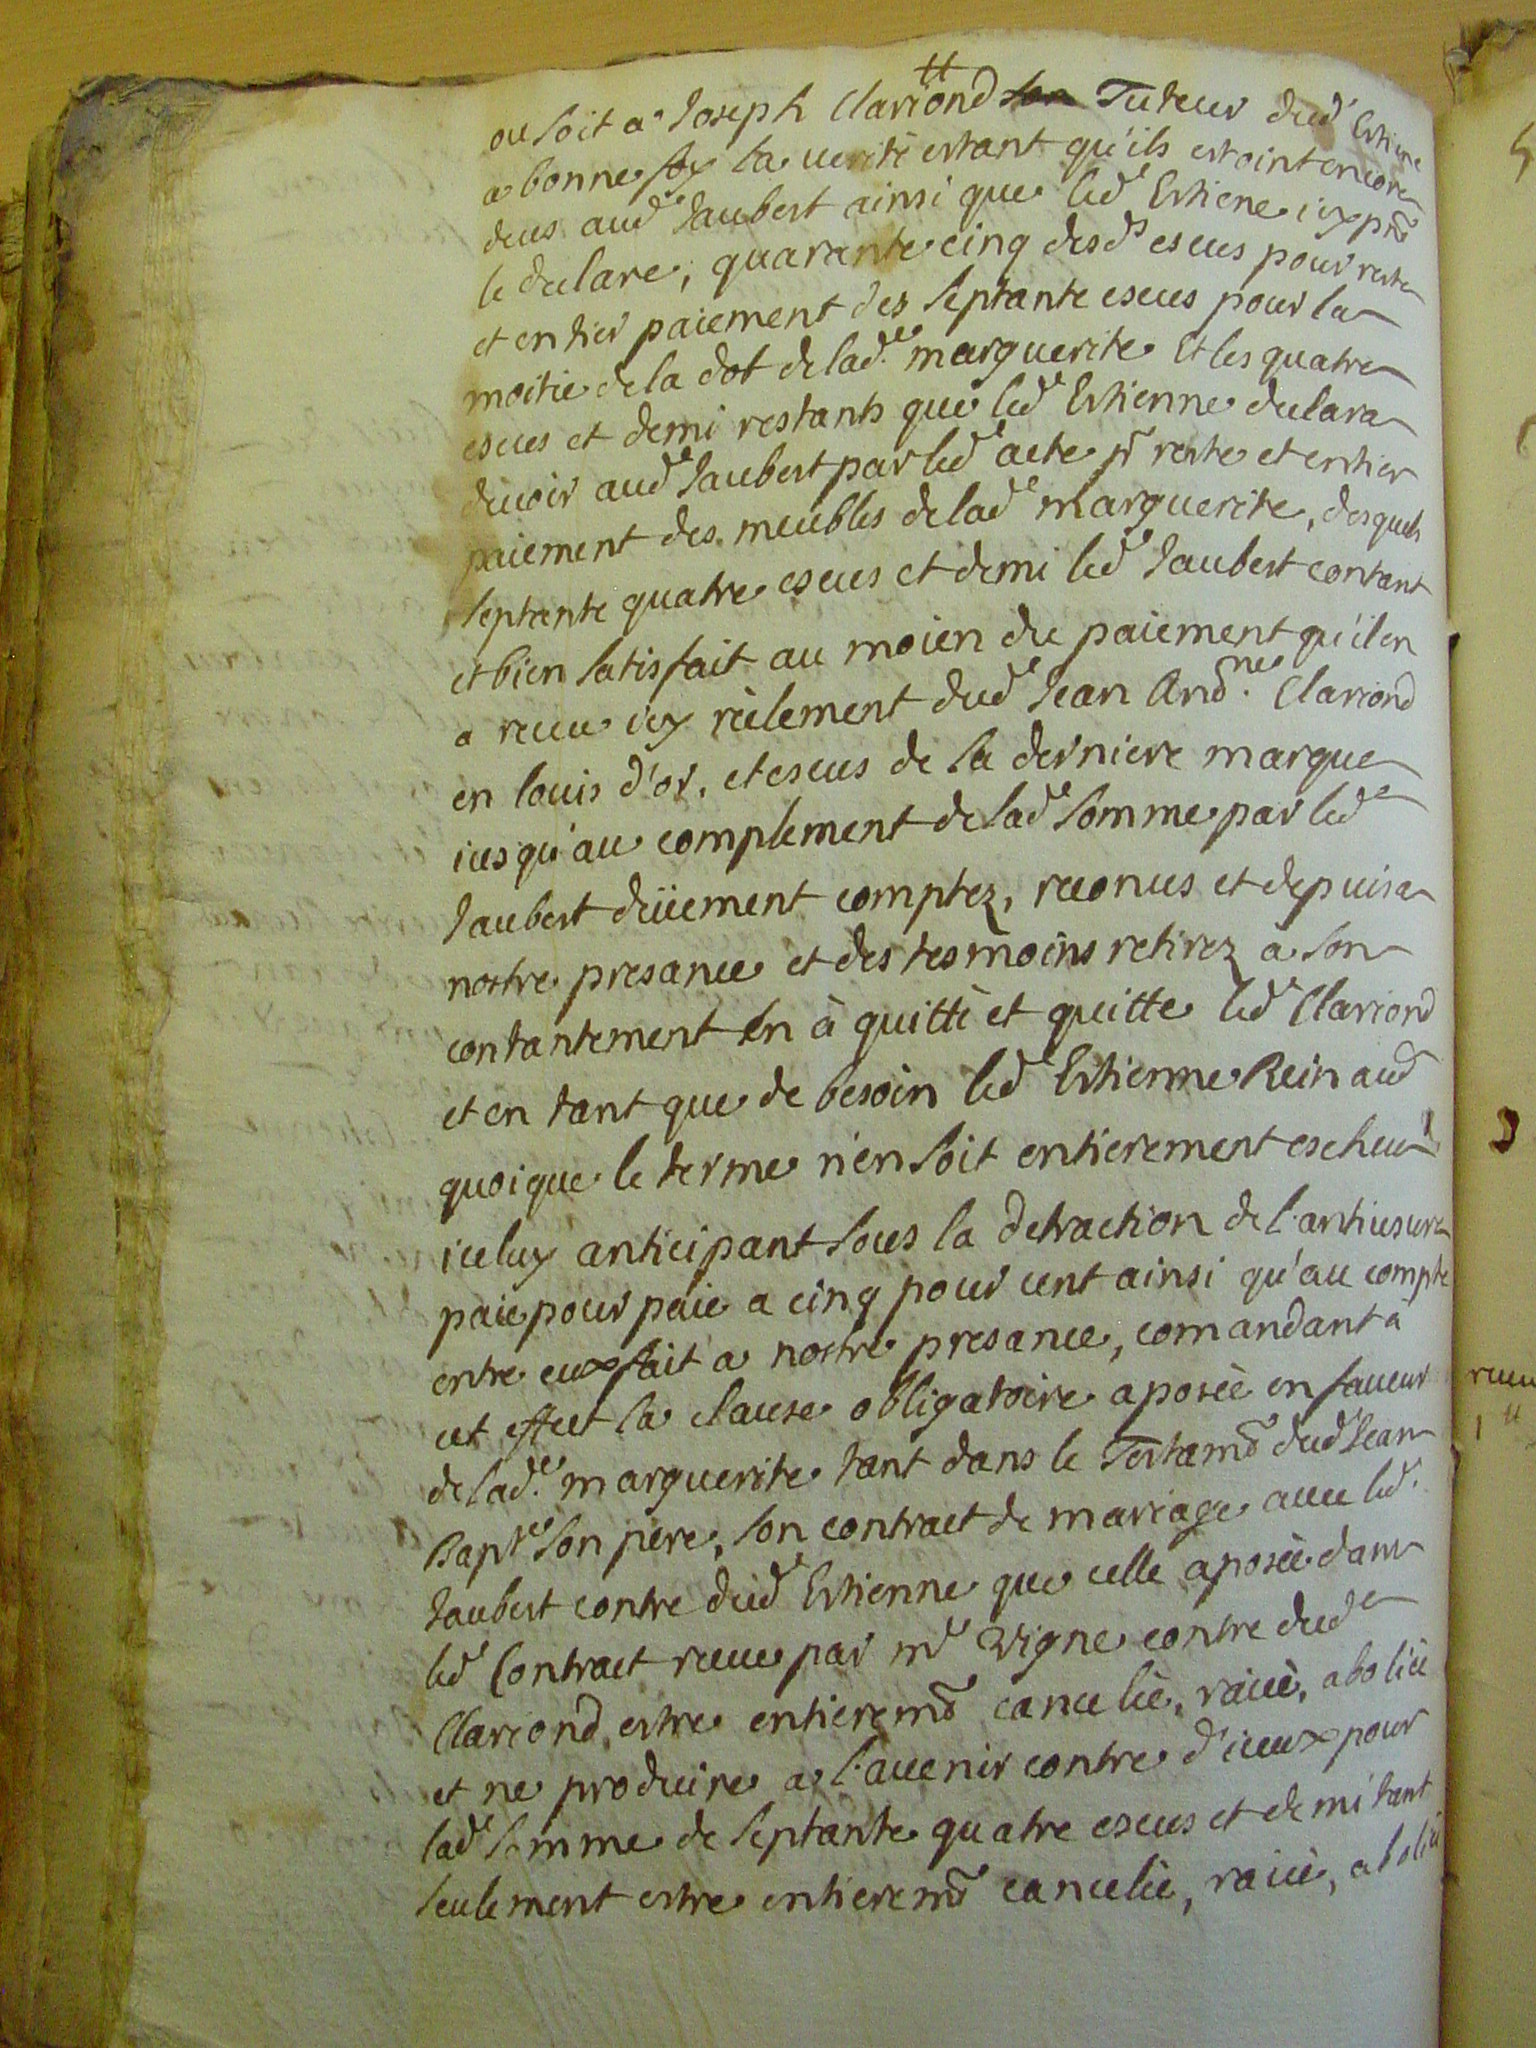 ou soit a Joseph Clariond Tuteur dud Estiene
a bonne foy la verité estant qu'ils estoint encore
deus aud<sup>e</sup> Jaubert ainsi que led<sup>e</sup> Estiene icy p<sup>nt</sup>
le declare, quarante cinq desd<sup>s</sup> escus pour reste
et entier paiement des septante escus pour la
moitie de la dot de lad.<sup>e</sup> marguerite Et les quatre
escus et demi restants que led<sup>e</sup> Estienne declara
devoir aud<sup>e</sup> Jaubert par led<sup>e</sup> acte p<sup>r</sup> reste et entier
paiement des meubles de lad<sup>e</sup> marguerite, desquels
septante quatre escus et demi led<sup>e</sup> Jaubert contant
et bien satisfait au moien du paiement qu'il en
a receu icy réelement dud<sup>e</sup> Jean And.<sup>ne</sup> Clariond
en louis d'or, et escus de la derniere marque
iusqu'au complement de lad<sup>e</sup> somme par led<sup>e</sup>
Jaubert deüement comptez, reconus et depuis a
nostre presance et des tesmoins retirez a son
contantement en à quitté et quitte led<sup>e</sup> Clariond
et en tant que de besoin led<sup>e</sup> Estienne Reinaud
quoique le terme n'en soit entierement escheu
iceluy anticipant sous la detraction de l'antiusure
paie pour paie a cinq pour cent ainsi qu'au compte
entre eux fait a nostre presance, comandant à
cet effect la clause obligatoire aposée en faveur
de lad.<sup>e</sup> marguerite tant dans le Testam<sup>t</sup> dud<sup>e</sup> Jean
Bapt<sup>e</sup> son pere, son contract de mariage avec led.
Jaubert contre dud<sup>e</sup> Estienne que celle aposée dans
led<sup>e</sup> Contract receu par m<sup>e</sup> Vigne contre dud<sup>e</sup>
Clariond, estre entierem<sup>t</sup> cancelée, raiée, abolice
et ne produire a l'avenir contre d'iceux pour
lad<sup>e</sup> somme de septante quatre escus et demi tant
seulement estre entierem<sup>t</sup> cancelée, raiée, abolie